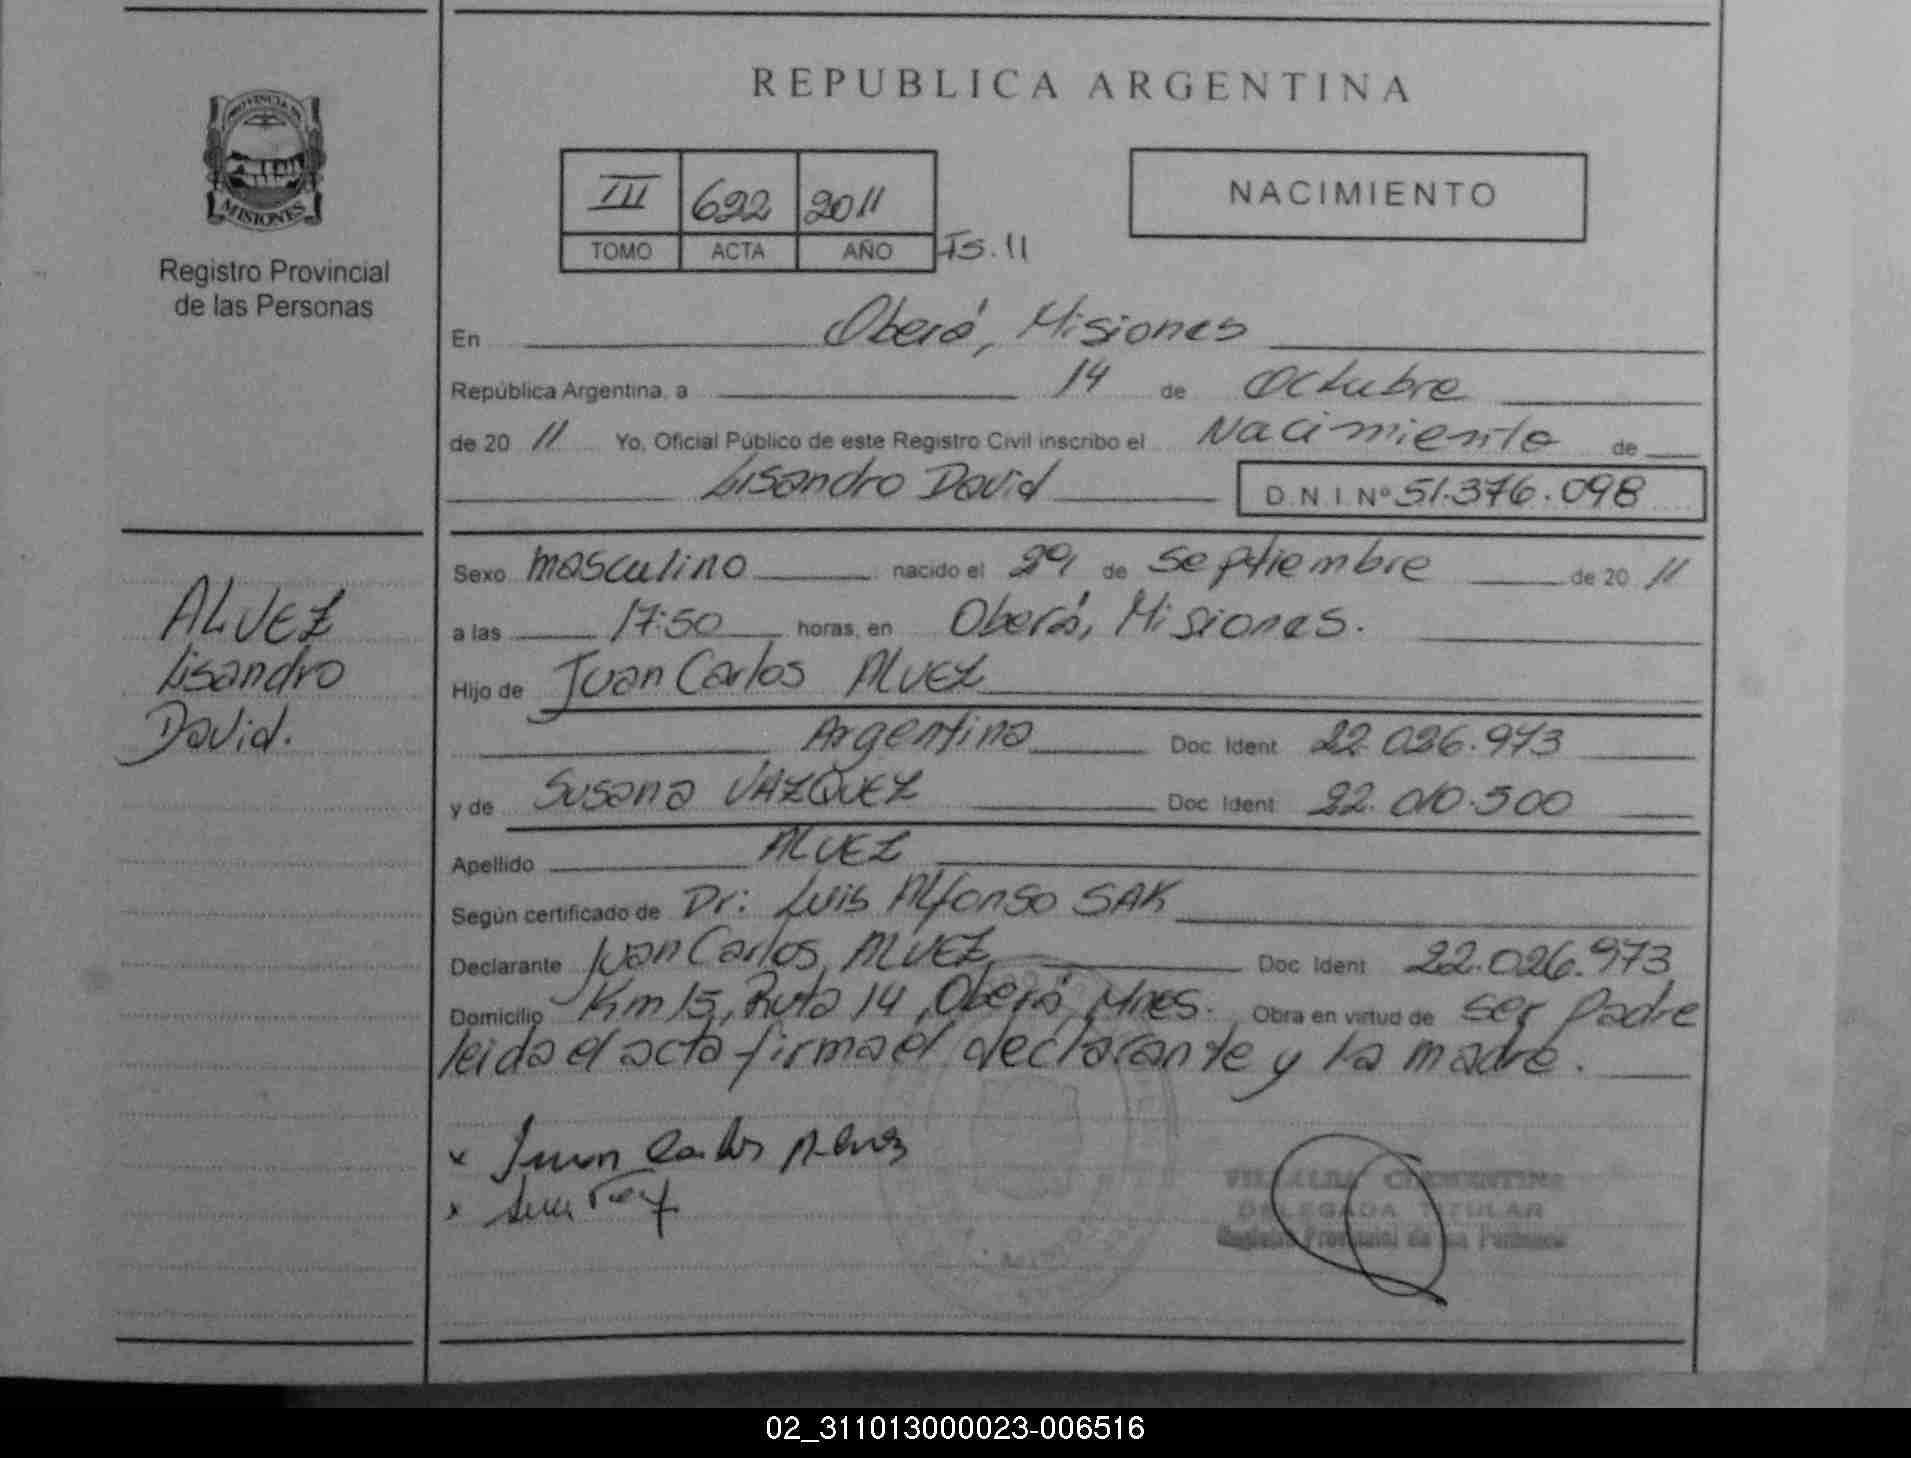 REPUBLICA ARGENTINA
PROVINCIA DE
MISIONES
Registro Provincial
de las Personas
III 622 2011
TOMO ACTA AÑO Is.11
NACIMIENTO
En Oberá, Misiones
República Argentina, a 14 de Octubre
de 20 11 Yo, Oficial Público de este Registro Civil inscribo el Nacimiento de
Lisandro David D.N.I. Nº 51.376.098
ALVEZ
Lisandro
David.
Sexo masculino nacido el 29 de septiembre de 20 11
a las 17:50 horas, en Oberá, Misiones.
Hijo de Juan Carlos ALVEZ
Argentina Doc. Ident. 22.026.973
y de Susana VAZQUEZ Doc. Ident. 22.010.500
Apellido ALVEZ
Según certificado de Dr: Luis Alfonso SAK
Declarante Juan Carlos ALVEZ Doc. Ident. 22.026.973
Domicilio Km 15, Ruta 14, Oberá, Mnes. Obra en virtud de ser padre
leida el acta firma el declarante y la madre.
x Juan Carlos Alvez
x
VILLALBA CLEMENTINA
DELEGADA TITULAR
Registro Provincial de las Personas
02_311013000023-006516